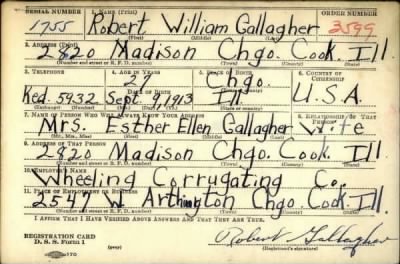 SERIAL NUMBER 1. NAME (Print) ORDER NUMBER
1755 Robert William Gallagher 3599
(First) (Middle) (Last)
2. ADDRESS (Print)
2820 Madison Chgo. Cook. Ill.
(Number and street or R. F. D. number) (Town) (County) (State)
3. TELEPHONE 4. AGE IN YEARS 5. PLACE OF BIRTH 6. COUNTRY OF CITIZENSHIP
27 Chgo.
DATE OF BIRTH
Ked. 5932 Sept. 9, 1913 Ill. U.S.A.
(Exchange) (Number) (Mo.) (Day) (Yr.) (State or country)
7. NAME OF PERSON WHO WILL ALWAYS KNOW YOUR ADDRESS 8. RELATIONSHIP OF THAT PERSON
Mrs. Esther Ellen Gallagher Wife
(Mr., Mrs., Miss) (First) (Middle) (Last)
9. ADDRESS OF THAT PERSON
2820 Madison Chgo. Cook. Ill.
(Number and street or R. F. D. number) (Town) (County) (State)
10. EMPLOYER'S NAME
Wheeling Corrugating Co.
11. PLACE OF EMPLOYMENT OR BUSINESS
2547 W. Arthington Chgo. Cook. Ill.
(Number and street or R. F. D. number) (Town) (County) (State)
I AFFIRM THAT I HAVE VERIFIED ABOVE ANSWERS AND THAT THEY ARE TRUE.
REGISTRATION CARD
D. S. S. Form 1 Robert Gallagher